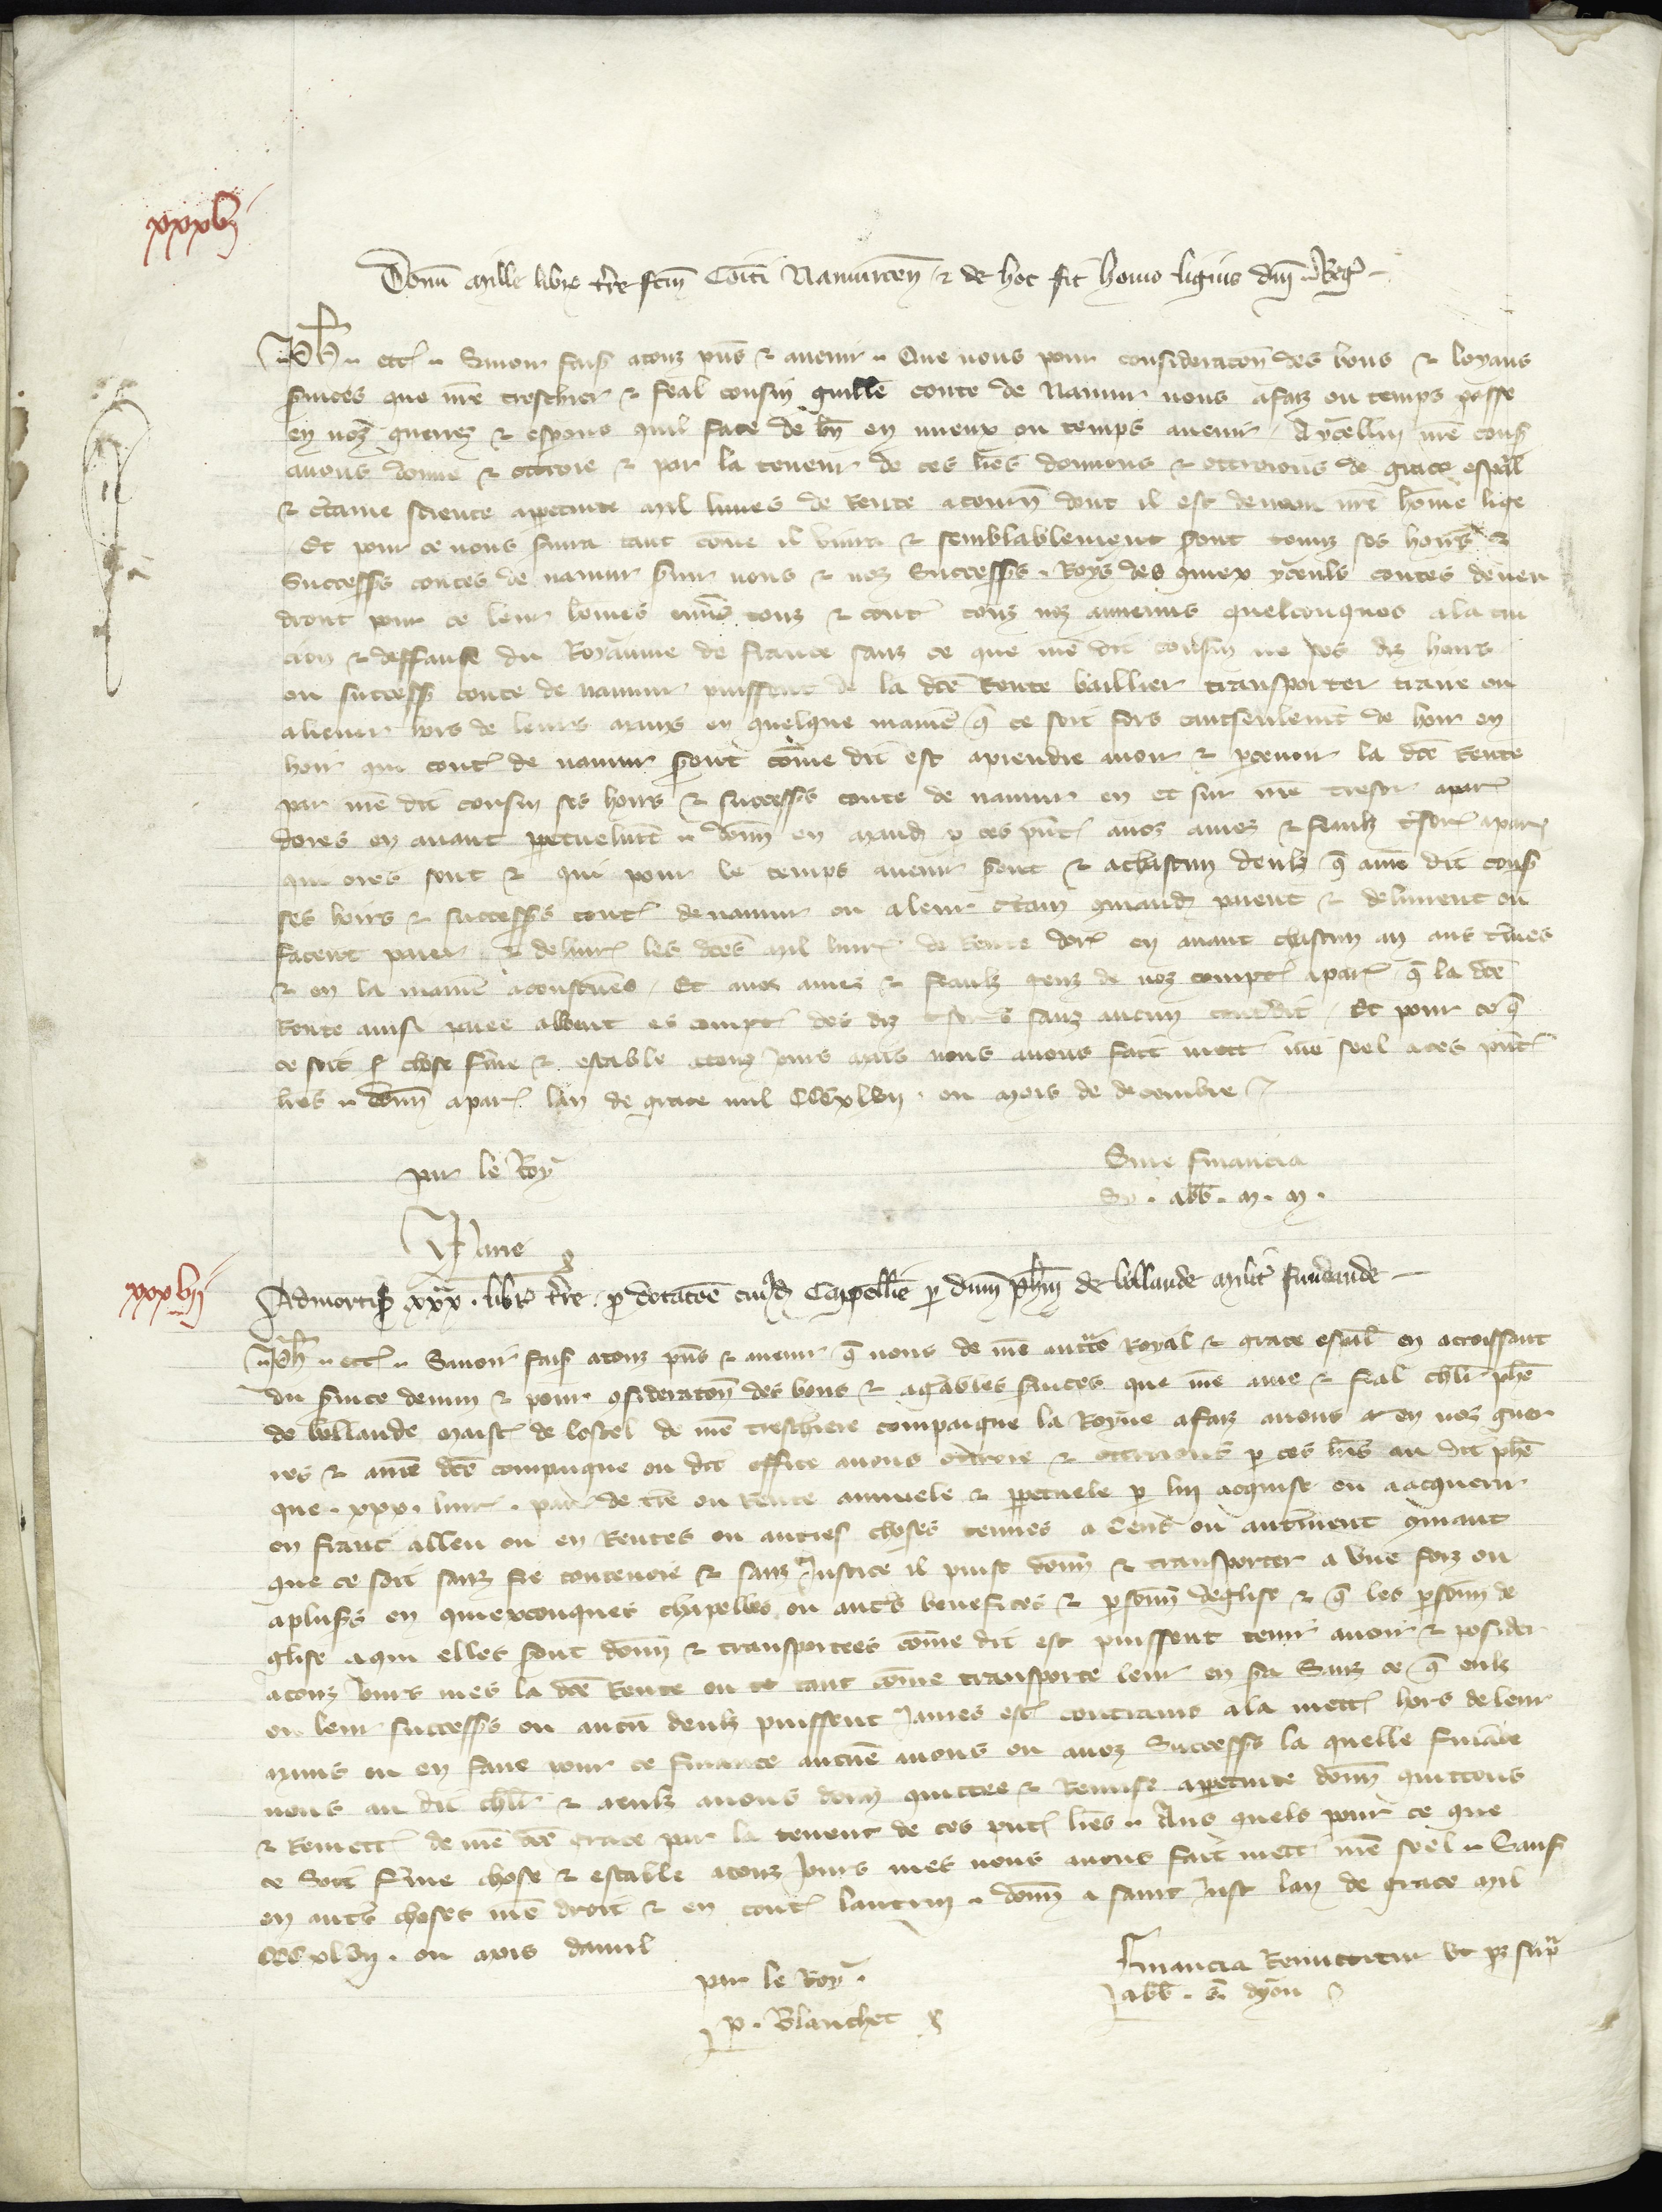 xxxvi
Donum mille libr tre fctm Comiti Namurcen & de hoc fit homo ligius dni Reg
Ph etc Savoir fais a touz pns & avenir Que nous pour consideracon des bons & loyaus
services que nre treschier & feal cousin guille conte de Namur nous a faiz ou temps passe
en noz guerres & esperons quil face de bn en mieux ou temps avenir A ycellui nre cous
avons donne & ottroie & par la teneur de ces lres donnons & ottroions de grace espal
& ctaine science a perpetuite mil livres de Rente a tourn dont il est devenu nre home lige
Et pour ce nous servira tant come il vivra & semblablement seront touz ses hoirs &
Successrs contes de namur servir nous & noz Successrs Roys des quiex yceuls contes deven
dront pour ce leur homes envers touz & contr touz noz annemis quelconques a la tui
cion & deffanse du Royaume de france sanz ce que nre dit cousin ne ses diz hoirs
ou successrs conte de namur puissent de la dce Rente baillier transporter traire ou
aliener hors de leurs mains en quelque manie q ce soit fors tantseulemt de hoir en
hoir qui contes de namur seront come dit est a prendre avoir & pcevoir la dce Rente
par nre dit cousin ses hoirs & successrs conte de namur en et sur nre tresor a par
dores en avant perpetuelmt donn en mand p ces pntes a noz amez & feaulx tresor a par
qui ores sont & qui pour le temps avenir seront & a chascun deulx q a nre dit cous
ses hoirs & successrs contes de namur ou a leur ctain mand paient & delivrent ou
facent paier & delivr les dces mil livr de Rente dores en avant chascun an aus tmes
& en la manie acoustumee Et a noz amez & feaulx genz de noz comptes a par q la dce
Rente ainsi paiee alloent es comptes des diz tresors sanz aucun contredit Et pour ce q
ce soit chose ferme & estable a touz jours mais nous avons fait mett nre seel a ces pntes
lres donn a par lan de grace mil CCCxlvii ou mois de decembre
par le Roy
Sine financia
abb
Jane
xxxvii
Admortis xxx libr tre p dotacoe cuiusd Capellie p dnm phm de bollande milit fundande
Ph etc Savoir fais a touz pns & avenir q nous de nre auctte Royal & grace espal en acroissant
du service devin & pour consideracon des bons & agreables services que nre ame & feal chlr phe
de bollande maistre de lostel de nre treschiere compaigne la Royne a faiz a nous et en noz guer
res & a nre dce compaigne ou dit office avons ottroie & ottroions p ces lres au dit phe
que xxx livr par de tre ou Rente annuele & perpetuele p lui acquise ou a acquerir
en franc alleu ou en Rentes ou autres choses tenues a Cens ou autrement comant
que ce soit sanz fie contenoie & sanz Justice il puist donn & transporter a une foiz ou
a plusrs en quiexconques chapelles ou autrs benefices & psonn deglise & q les psonn de
glise a qui elles seront donn & transportees come dit est puissent tenir avoir & posider
a touz jours mes la dce Rente ou tant come transporte leur en sera Sanz ce q eulx
ou leur successrs ou aucun deulx puissent James estre contrains a la mettre hors de leur
mains ou en faire pour ce finance aucune a nous ou a noz Successrs la quelle finance
nous au dit chlr & a eulx avons donn quittee & Remise a perpetuite donn quittons
& Remett de nre dce grace par la teneur de ces pntes lres Aus quels pour ce que
ce Soit ferme chose & estable a touz jours mes nous avons fait mett nre seel Sauf
en autrs choses nre droit & en contes lautrui donn a saint Just lan de grace mil
CCCxlvii ou mois davril
par le Roy
P. Blanchet
Financia Remittitur ut sup
abb s dyon